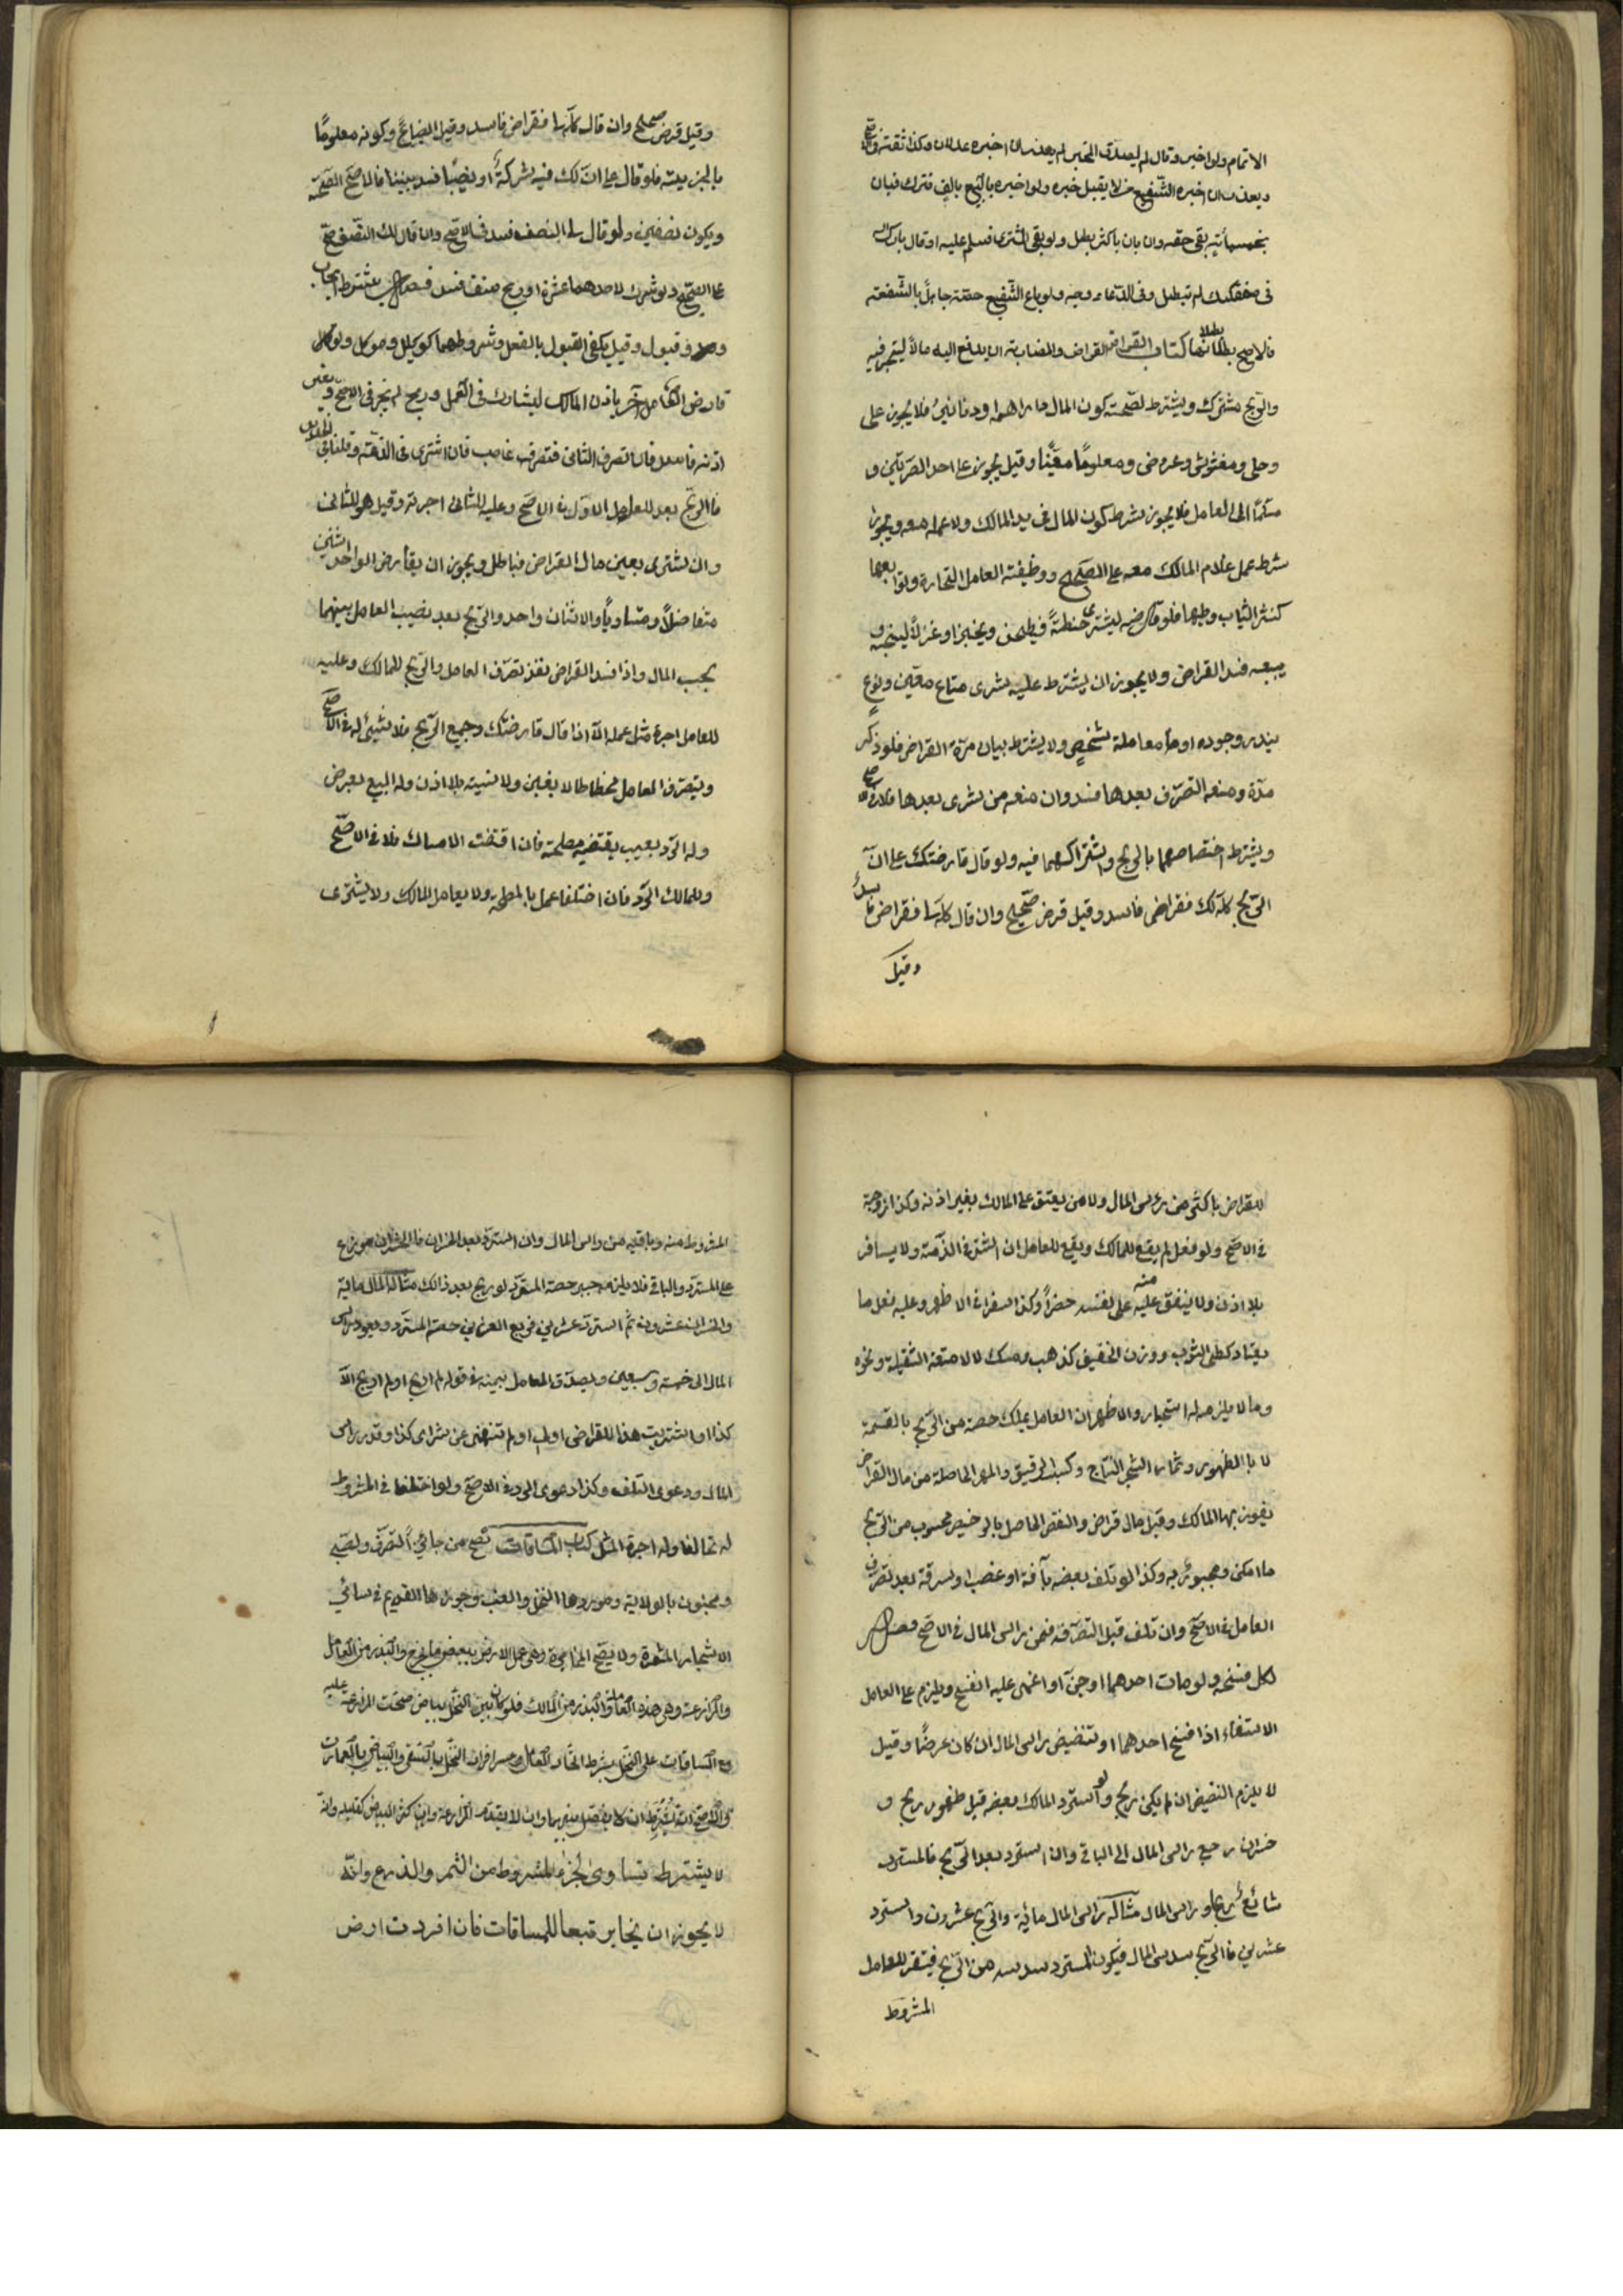 الاتمام ولو اخبر وقال لم اصدق المخبر لم يعذر ان اخبره عدلان وكذا ثقة في الاصح
ويعذر ان اخبره الشفيع من لا يقبل خبره ولو اخبره بالبيع بالف فترك فبان
بخمسمائة بقى حقه وان بان باكثر بطل ولو بقى المشترى فسلم عليه او قال بارك الله
فى صفقتك لم تبطل وفى الدعاء وجه ولو باع الشفيع حصته جاهلاً بالشفعته
فالاصح بطلانها كتاب القراض القراض والمضاربة ان يدفع اليه مالاً ليتجر فيه
والربح مشترك ويشترط لصحته كون المال دراهما ودنانير فلا يجوز على
وحلى ومغشوش وعروض ومعلومًا معيّنًا وقيل يجوز على احد الصرتين و
مسلمًا الى العامل فلا يجوز شرط كون المال فى يد المالك ولا عمله معه ويجوز
شرط عمل غلام المالك معه على الصحيح ووظيفته العامل التجارة وتوابعها
كنشر الثياب وطيها فلو قارضه ليشترى حنطةً فيطحن ويخبز او غزلاً لينسجه و
يبيعه فسد القراض ولا يجوز ان يشترط عليه شرى متاع معين ونوعٍ
يندر وجوده او معاملة شخصٍ ولا يشترط بيان مدة القراض فلو ذكر
مدّة ومنعه التصرّف بعدها فسد وان منعه من شرى بعدها فلا فى الاصح
ويشترط اختصاصهما بالربح واشتراكهما فيه ولو قال قارضتك على ان
الربح كله لك فقراض فاسد وقيل قرض صحيح وان قال كله لى فقراض فاسدٌ
وقيل
وقيل قرض صحيح وان قال كله لى فقراض فاسد وقيل ابضاعٌ وكونه معلومًا
بالجزيئة فلو قال على ان لك فيه شركةً او نصيبًا فسد بيننا فالاصح الصحّة
ويكون نصفين ولو قال لى النصف فسد فى الاصح وان قال لك النصف صح
على الصحيح ولو شرط لاحدهما عشرة او ربح صنف فسد فصل يشترط ايجاب
وقبول وقيل يكفى القبول بالفعل وشروطهما كوكيل وموكل ولو
قارض العامل آخر باذن المالك ليشاركه فى العمل وربح لم يجز فى الاصح وبغير
اذنه فاسد فان تصرف الثانى فتصرف غاصب فان اشترى فى الذمته وقلنا
فالربح بعد للعامل الاول فى الاصح وعليه للثانى اجرته وقيل هو للثانى
وان اشترى بعين مال القراض فباطل ويجوز ان يقارض الواحد اثنين
متفاضلاً ومتساويًا والاثنان واحد والربح بعد نصيب العامل بينهما
بحسب المال واذا فسد القراض نفذ تصرّف العامل والربح للمالك وعليه
للعامل اجرة مثل عمله الا اذا قال قارضتك وجميع الربح فلا شيئ له فى الاصح
ويتصرف العامل محتاطا لا بغبن ولا نسية بلا اذن وله البيع بعرض
وله الرد بعيب يقتضيه مصلحته فان اقتضت الامساك فلا فى الاصحّ
وللمالك الرد فان اختلفا عمل بالمصلحة ولا يعامل المالك ولا يشترى
للقراض باكثر من رأس المال ولا من يعتق على المالك بغير اذنه وكذا زوجة
فى الاصح ولو فعل لم يقع للمالك ويقع للعامل ان اشترى فى الذمّة ولا يسافر
بلا اذن ولا ينفق عليه منه على نفسه حضراً وكذا السفر فى الاظهر وعليه فعل ما
يعتاد كطى الثوب ووزن الخفيف كذهب ومسك لا لامتعة الثقيلة ونحوه
وما لا يلزمه له استيجار والاظهر ان العامل يملك حصته من الربح بالقسمة
لا بالظهور وثمار الشجر النتاج وكسب الرقيق والمهر الحاصلة من مال القراض
يفوز بها المالك وقيل مال قراض والنقص الحاصل بالرخيص محسوب من الربح
ما امكن ومجبورٌ به وكذا لو تلف بعضه بآفة او غصب او سرقة بعد تصرف
العامل فى الاصح وان تلف قبل التصرّفه فمن رأس المال فى الاصح فصل
لكل فسخه ولو مات احدهما او جنّ او اغمى عليه انفسخ ويلزم على العامل
الاستيفاء اذا فسخ احدهما او تنضيض رأس المال ان كان عرضًا وقيل
لا يلزم التنضيض ان لم يكن ربح ولو استرد المالك بعضه قبل ظهور ربح و
خسران رجع رأس المال الى الباقى وان استرد بعد الربح فالمسترد
شائعٌ ربحًا ورأس المال مثاله رأس المال مائة والربح عشرون واسترد
عشرين فالربح سدس المال فيكون المسترد سدسه من الربح فيستقر للعامل
المشروط
المشروط منه وباقيه من رأس المال وان استردّ بعد الخسران فالخسران موزع
على المسترد والباقى فلا يلزم جبر حصة المسترد لو ربح بعد ذالك مثاله المال مائة
والخسران عشرون ثم استرد عشرين فربع العشرين حصة المسترد ويعود رأس
المال الى خمسة وسبعين ويصدّق العامل بيمينه فى قوله لم اربح او لم اربح الا
كذا او اشتريت هذا للقراض او لى او لم تنهنى عن شراى كذا وقدر رأس
المال ودعوى التلف وكذا دعوى الرد فى الاصح ولو اختلفا فى المشروط
له تحالفا وله اجرة المثل كتاب المساقات تصح من جائز التصرّف ولصبى
ومجنون بالولاية وموردها النخل والعنب وجوزها القديم فى سائر
الاشجار المثمرة ولا يصحّ المخابرة وهى عمل الارض ببعض ما يخرج والبذر من العامل
والمزارعة وهى هذه المعاملة والبذر من المالك فلو كان بين النخل بياض صحّت المزارعة عليه
مع المساقات على النخل بشرط اتحاد العامل وعسر افراد النخل بالسقى والبياض بالعمارت
والاصح انه يشترط ان لا يفصل بينهما وان لا يقدّم المزارعة وان كثر البياض كقليله وانّه
لا يشترط تساوى الجزء المشروط من الثمر والذرع وانّه
لا يجوز ان يخابر تبعا للمساقات فان افردت ارض